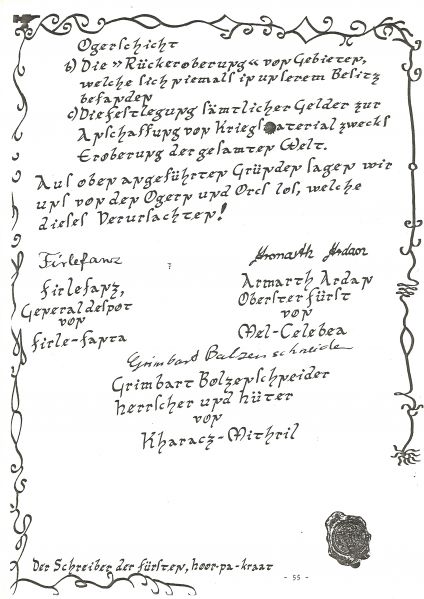 Ogerschicht
b) Die »Rückeroberung« von Gebieten,
welche sich niemals in unserem Besitz
befanden
c) Die Festlegung sämtlicher Gelder zur
Anschaffung von Kriegsmaterial zwecks
Eroberung der gesamten Welt.
Aus oben angeführten Gründen sagen wir
uns von den Ogern und Orcs los, welche
dieses Verursachten!
Firlefanz
Firlefanz,
Generaldespot
von
Firle-Fanta
Armarth Ardan
Armarth Ardan
Oberster Fürst
von
Mel-Celebea
Grimbart Bolzenschneider
Grimbart Bolzenschneider
Herrscher und Hüter
von
Kharacz-Mithril
Der Schreiber der Fürsten, hoor-pa-kraat
- 55 -